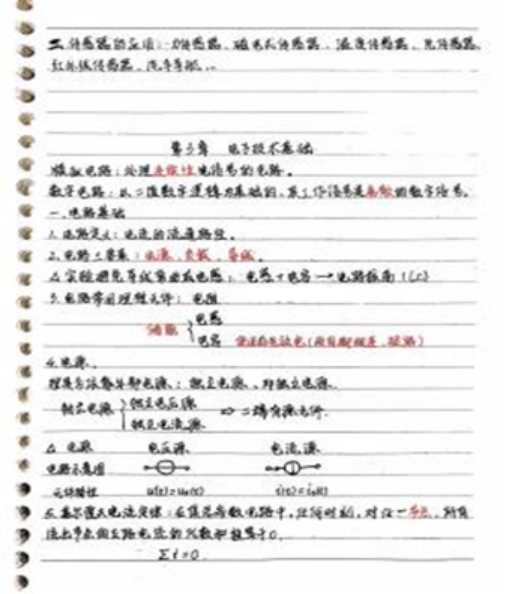 二.传感器的应用:力传感器、磁电式传感器、温度传感器、光传感器、
红外线传感器、汽车导航...
第3章 电子技术基础
模拟电路:处理连续性电信号的电路。
数字电路:以二值数字逻辑为基础的,其工作信号是离散的数字信号。
一.电路基础
1.电路定义:电流的流通路径。
2.电路三要素:电源、负载、导线。
△ 实验避免导线弯曲成电感:电感+电容→电路振荡(LC)
3.电路常用理想元件:电阻
储能 { 电感
电容
4.电源.
理想与依靠外部电源:独立电源、非独立电源.
独立电源 { 独立电压源
独立电流源 ⇒ 二端有源元件.
△ 电源 电压源 电流源
电路示意图
元件特性 u(t)=us(t) i(t)=is(t)
5.基尔霍夫电流定律:在集总参数电路中,任何时刻,对任一节点,所有
流出节点的支路电流的代数和恒等于0.
Σi=0